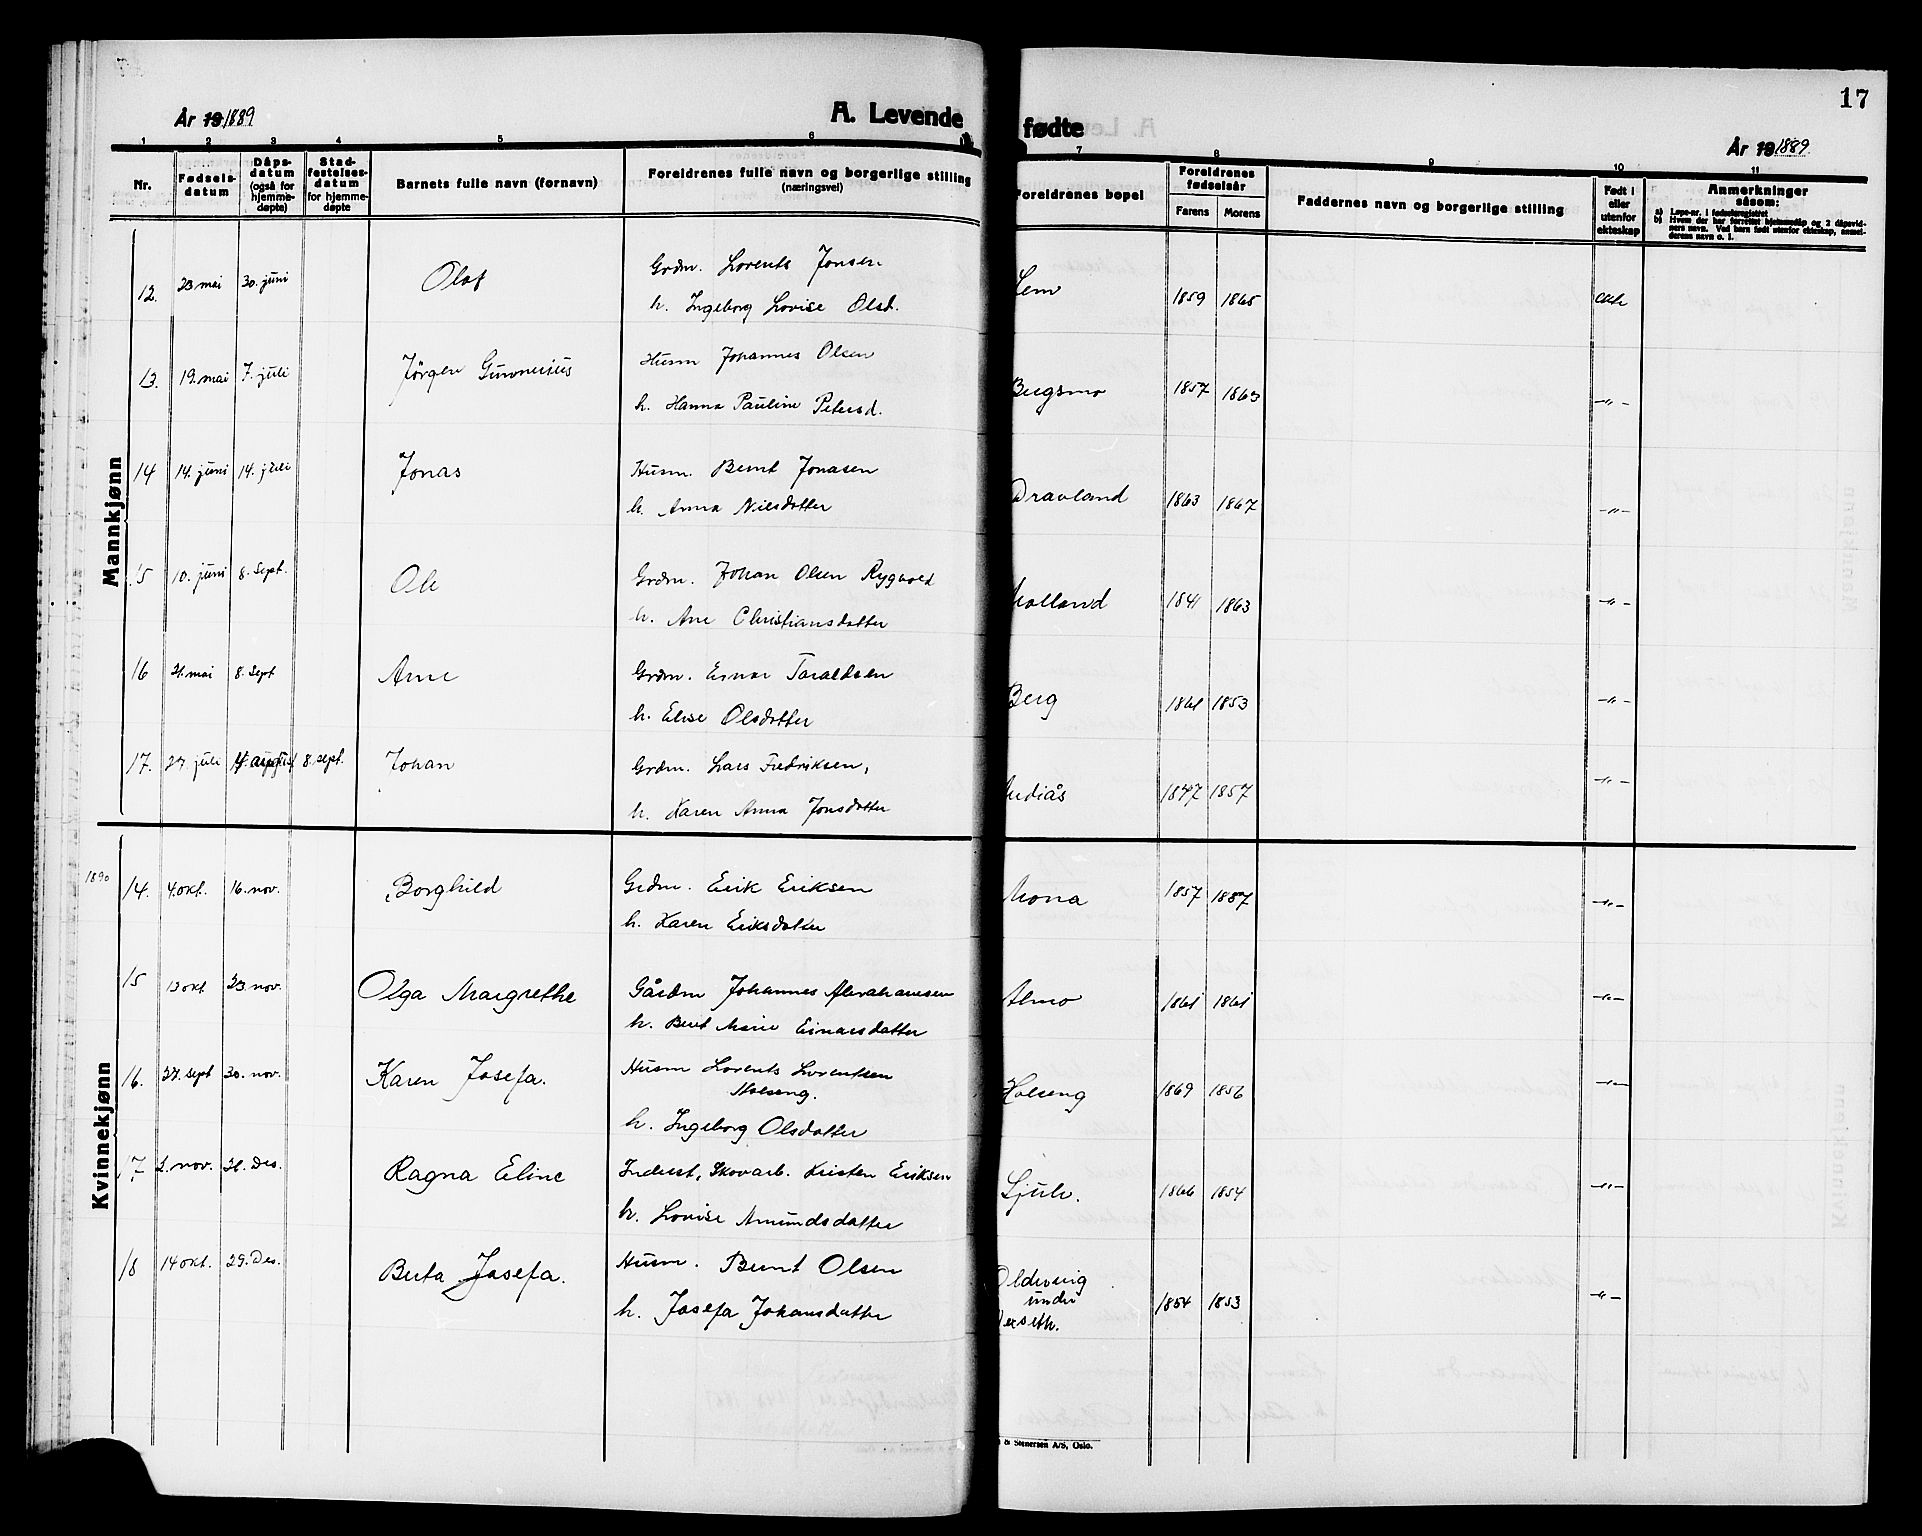 17
År 19 1889
A. Levende fødte
År 19 1889
1 2 3 4 5 6 7 8 9 10 11
Nr.
Fødselsdatum
Dåpsdatum (også for hjemmedøpte)
Stadfestelsesdatum for hjemmedøpte
Barnets fulle navn (fornavn)
Foreldrenes fulle navn og borgerlige stilling (næringsvei)
Foreldrenes bopel
Foreldrenes fødselsår
Farens Morens
Faddernes navn og borgerlige stilling
Født i eller utenfor ekteskap
Anmerkninger såsom:
Mannkjønn
12. 23 mai 30. juni Olaf Grdm. Lorents Jonsen Lem 1859 1865 ekte
h. Ingeborg Lovise Olsd.
13. 19. mai 7. juli Jörgen Husm Johannes Olsen 1857 1863 -"-
h. Hanna Pauline Petersd.
14 14. juni 14. juli Jonas Husm. Bernt Jonasen Dravland 1863 1867 -"-
h. Anna Nilsdatter
15 10. juni 8. Sept. Ole Grdm. Johan Olsen 1841 1863 -"-
h. Ane Christiansdatter
16 mai 8. Sept Arne Grdm. Einar Taraldsen Berg 1861 1853 -"-
h. Elise Olsdatter
17. 27. juli august 8. sept. Johan Grdm. Lars Fredriksen, 1847 1857 -"-
h. Karen Anna Jonsdatter
Kvinnekjønn
1890
14. 4. okt. 16. nov. Borghild Grdm. Erik Eriksen Mona 1857 1857 -"-
h. Karen Eriksdatter
15 13 okt. 23. nov. Olga Margrethe Gårdm Johannes Abrahamsen Almo 1861 1861 -"-
h. Berit Marie Einarsdatter
16. 27. sept 30. nov. Karen Josefa. Husm Lorents Lorentsen Holseng 1869 1856 -"-
Holseng.
h. Ingeborg Olsdatter
17 2. nov. Des. Ragna Eline Inderst, Skovarb. Kristen Eriksen 1866 1854 -"-
h. Lovise Amundsdatter
18 14 okt. 29. Des. Berta Josefa. Husm. Bernt Olsen 1854 1853 -"-
under
h. Josefa Johansdatter
& Stenersen A/S, Oslo.